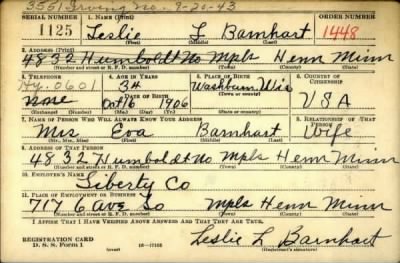 3551 Irving No. 9-20-43
SERIAL NUMBER 1. NAME (Print) ORDER NUMBER
1125 Leslie L Barnhart 1448
(First) (Middle) (Last)
2. ADDRESS (Print)
4832 Humboldt No Mpls Henn Minn
(Number and street or R. F. D. number) (Town) (County) (State)
3. TELEPHONE 4. AGE IN YEARS 5. PLACE OF BIRTH 6. COUNTRY OF CITIZENSHIP
Hy. 0601 34 Washburn Wis
DATE OF BIRTH (Town or county)
none Oct 16 1906 USA
(Exchange) (Number) (Mo.) (Day) (Yr.) (State or country)
7. NAME OF PERSON WHO WILL ALWAYS KNOW YOUR ADDRESS 8. RELATIONSHIP OF THAT PERSON
Mrs Eva Barnhart Wife
(Mr., Mrs., Miss) (First) (Middle) (Last)
9. ADDRESS OF THAT PERSON
4832 Humboldt No Mpls Henn Minn
(Number and street or R. F. D. number) (Town) (County) (State)
10. EMPLOYER'S NAME
Liberty Co
11. PLACE OF EMPLOYMENT OR BUSINESS
717 6 Ave So Mpls Henn Minn
(Number and street or R. F. D. number) (Town) (County) (State)
I AFFIRM THAT I HAVE VERIFIED ABOVE ANSWERS AND THAT THEY ARE TRUE.
REGISTRATION CARD
D. S. S. Form 1 (over) Leslie L Barnhart